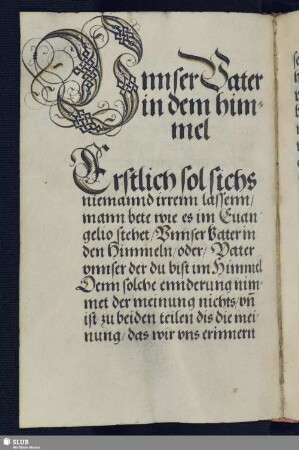 Vnnser Vater
in dem him-
mel
Erstlich sol sichs
niemannd irrenn lassenn/
mann bete wie es im Euan
gelio stehet/ Vnnser Vater in
den Himmeln/ oder/ Vater
vnnser der du bist im Himmel
Denn solche ennderung nim
met der meinung nichts/ vn̄
ist zu beiden teilen dis die mei
nung/ das wir vns erinnern
SLUB